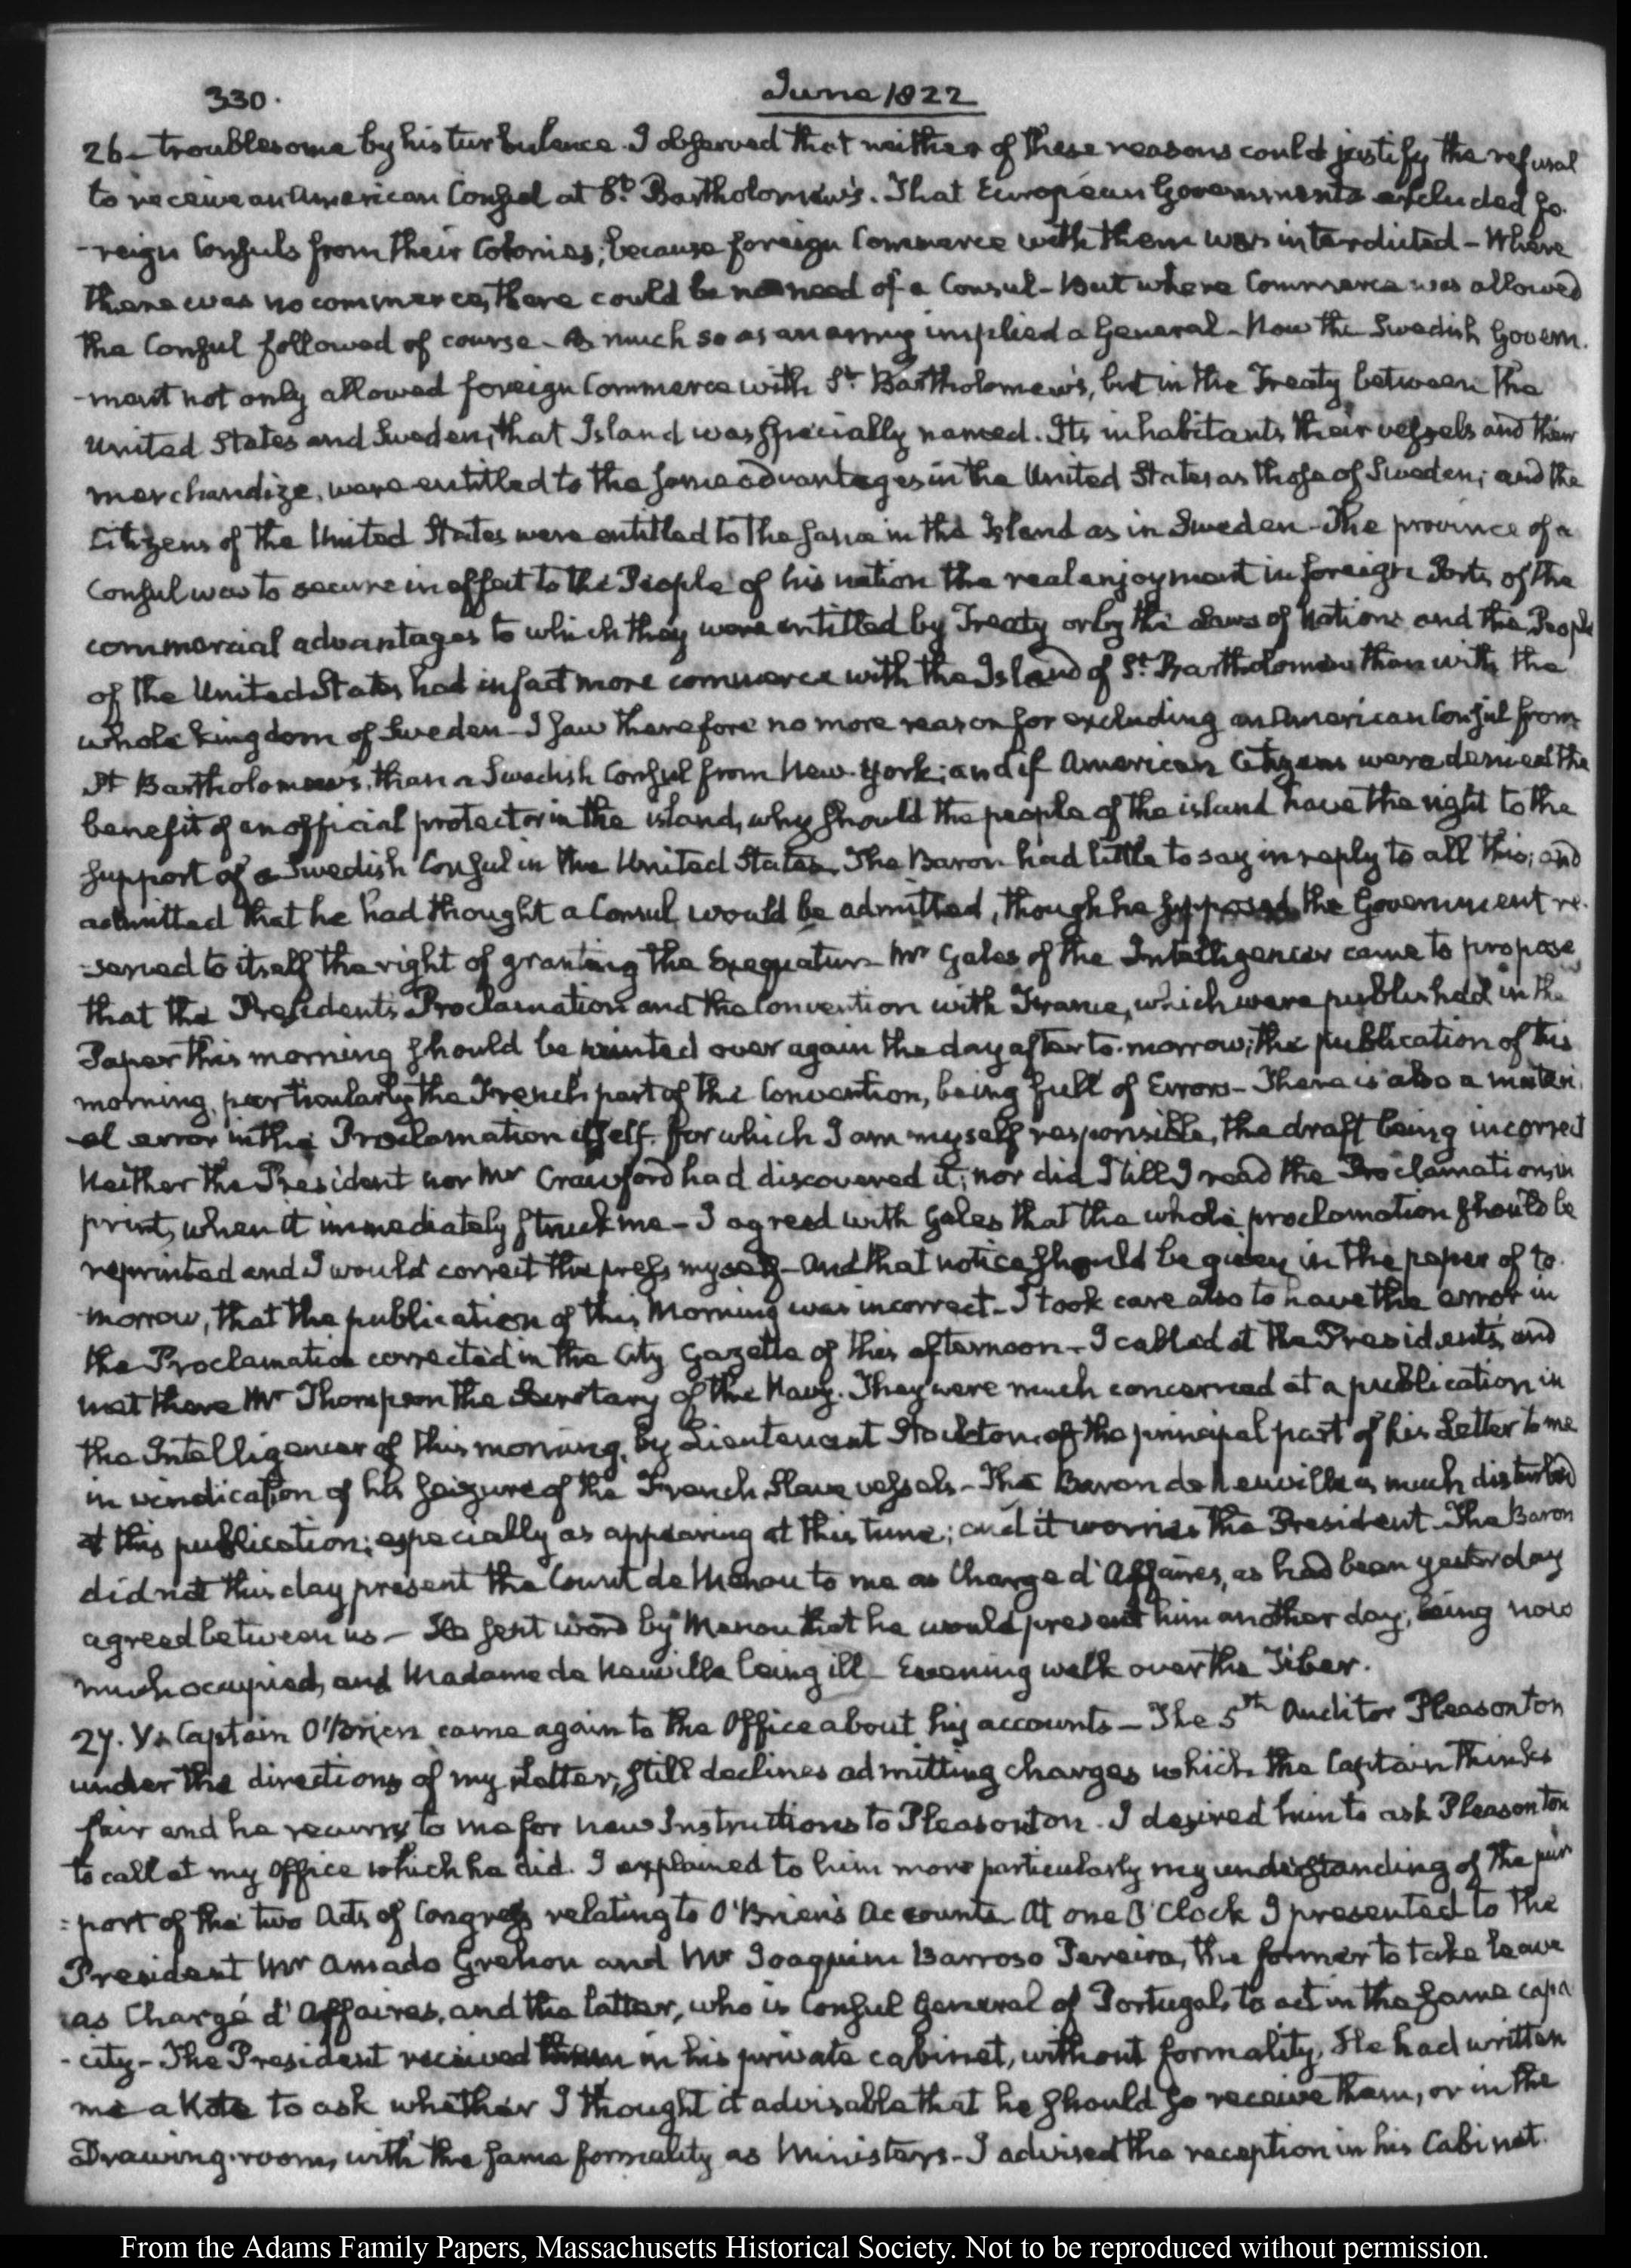 330.
June 1822
26 - troublesome by his turbulence. I observed that neither of these reasons could justify the refusal
to receive an American Consul at St. Bartholomew's. That European Governments excluded fo-
-reign Consuls from their Colonies; because foreign Commerce with them was interdicted - Where
there was no commerce, there could be no need of a Consul - But where Commerce was allowed
the Consul followed of course - As much so as an army implied a General - Now the Swedish Govern-
-ment not only allowed foreign Commerce with St. Bartholomew's, but in the Treaty between the
United States and Sweden, that Island was specially named. Its inhabitants their vessels and their
merchandize, were entitled to the same advantages in the United States as those of Sweden; and the
Citizens of the United States were entitled to the same in the Island as in Sweden - The province of a
Consul was to secure in effect to the People of his nation the real enjoyment in foreign Ports of the
commercial advantages to which they were entitled by Treaty or by the Laws of Nations and the People
of the United States had in fact more commerce with the Island of St. Bartholomew than with the
whole kingdom of Sweden - I saw therefore no more reason for excluding an American Consul from
St Bartholomew's, than a Swedish Consul from New-York; and if American Citizens were denied the
benefit of an official protector in the island, why should the people of the island have the right to the
support of a Swedish Consul in the United States. The Baron had little to say in reply to all this; and
admitted that he had thought a Consul would be admitted, though he supposed the Government re-
-served to itself the right of granting the Exequatur - Mr Gales of the Intelligencer came to propose
that the President's Proclamation and the Convention with France, which were published in the
Paper this morning should be printed over again the day after to-morrow; the publication of this
morning, particularly the French part of the Convention, being full of Errors - There is also a materi-
-al error in the Proclamation itself. for which I am myself responsible, the draft being incorrect
Neither the President nor Mr Crawford had discovered it; nor did I till I read the Proclamation, in
print, when it immediately struck me - I agreed with Gales that the whole proclamation should be
reprinted and I would correct the press myself - And that notice should be given in the paper of to-
-morrow, that the publication of this Morning was incorrect - I took care also to have the error in
the Proclamation corrected in the City Gazette of this afternoon - I called at the President's, and
met there Mr Thompson the Secretary of the Navy. They were much concerned at a publication in
the Intelligencer of this morning, by Lieutenant Stockton, of the principal part of his Letter to me
in vindication of his seizure of the French Slave vessels - The Baron de Neuville is much disturbed
at this publication; especially as appearing at this time; and it worries the President - The Baron
did not this day present the Count de Menou to me as Chargé d'Affaires, as had been yesterday
agreed between us - He sent word by Menou that he would present him another day, being now
much occupied, and Madame de Neuville being ill - Evening walk over the Tiber.
27. V. Captain O'Brien came again to the Office about his accounts - The 5th Auditor Pleasonton
under the directions of my Letter, still declines admitting charges which the Captain thinks
fair and he recurs to me for new Instructions to Pleasonton. I desired him to ask Pleasonton
to call at my Office which he did. I explained to him more particularly my understanding of the pur-
=port of the two Acts of Congress relating to O'Brien's Accounts - At one O'Clock I presented to the
President Mr Amado Grehon and Mr Joaquim Barroso Pereira, the former to take leave
as Chargé d'Affaires, and the latter, who is Consul General of Portugal, to act in the same capa-
-city - The President received them in his private cabinet, without formality. He had written
me a Note to ask whether I thought it advisable that he should so receive them, or in the
Drawing-room, with the same formality as Ministers - I advised the reception in his Cabinet.
From the Adams Family Papers, Massachusetts Historical Society. Not to be reproduced without permission.